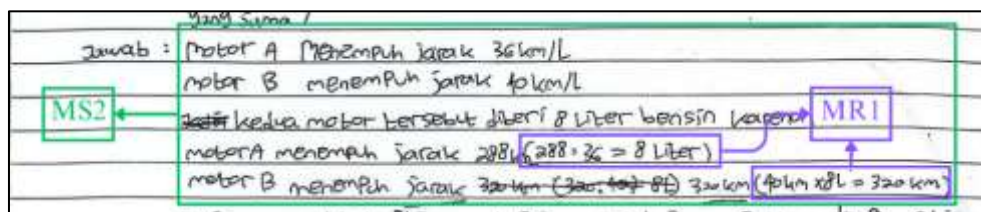 yang sama ?
Jawab : Motor A Menempuh jarak 36 km/L
motor B menempuh jarak 40 km/L
MS2
kedua motor tersebut diberi 8 Liter bensin karena
MR1
motor A menempuh jarak 288km (288 : 36 = 8 Liter)
motor B menempuh jarak 320 km (320 : 40) 8L) 320 km (40km x8L = 320 km)